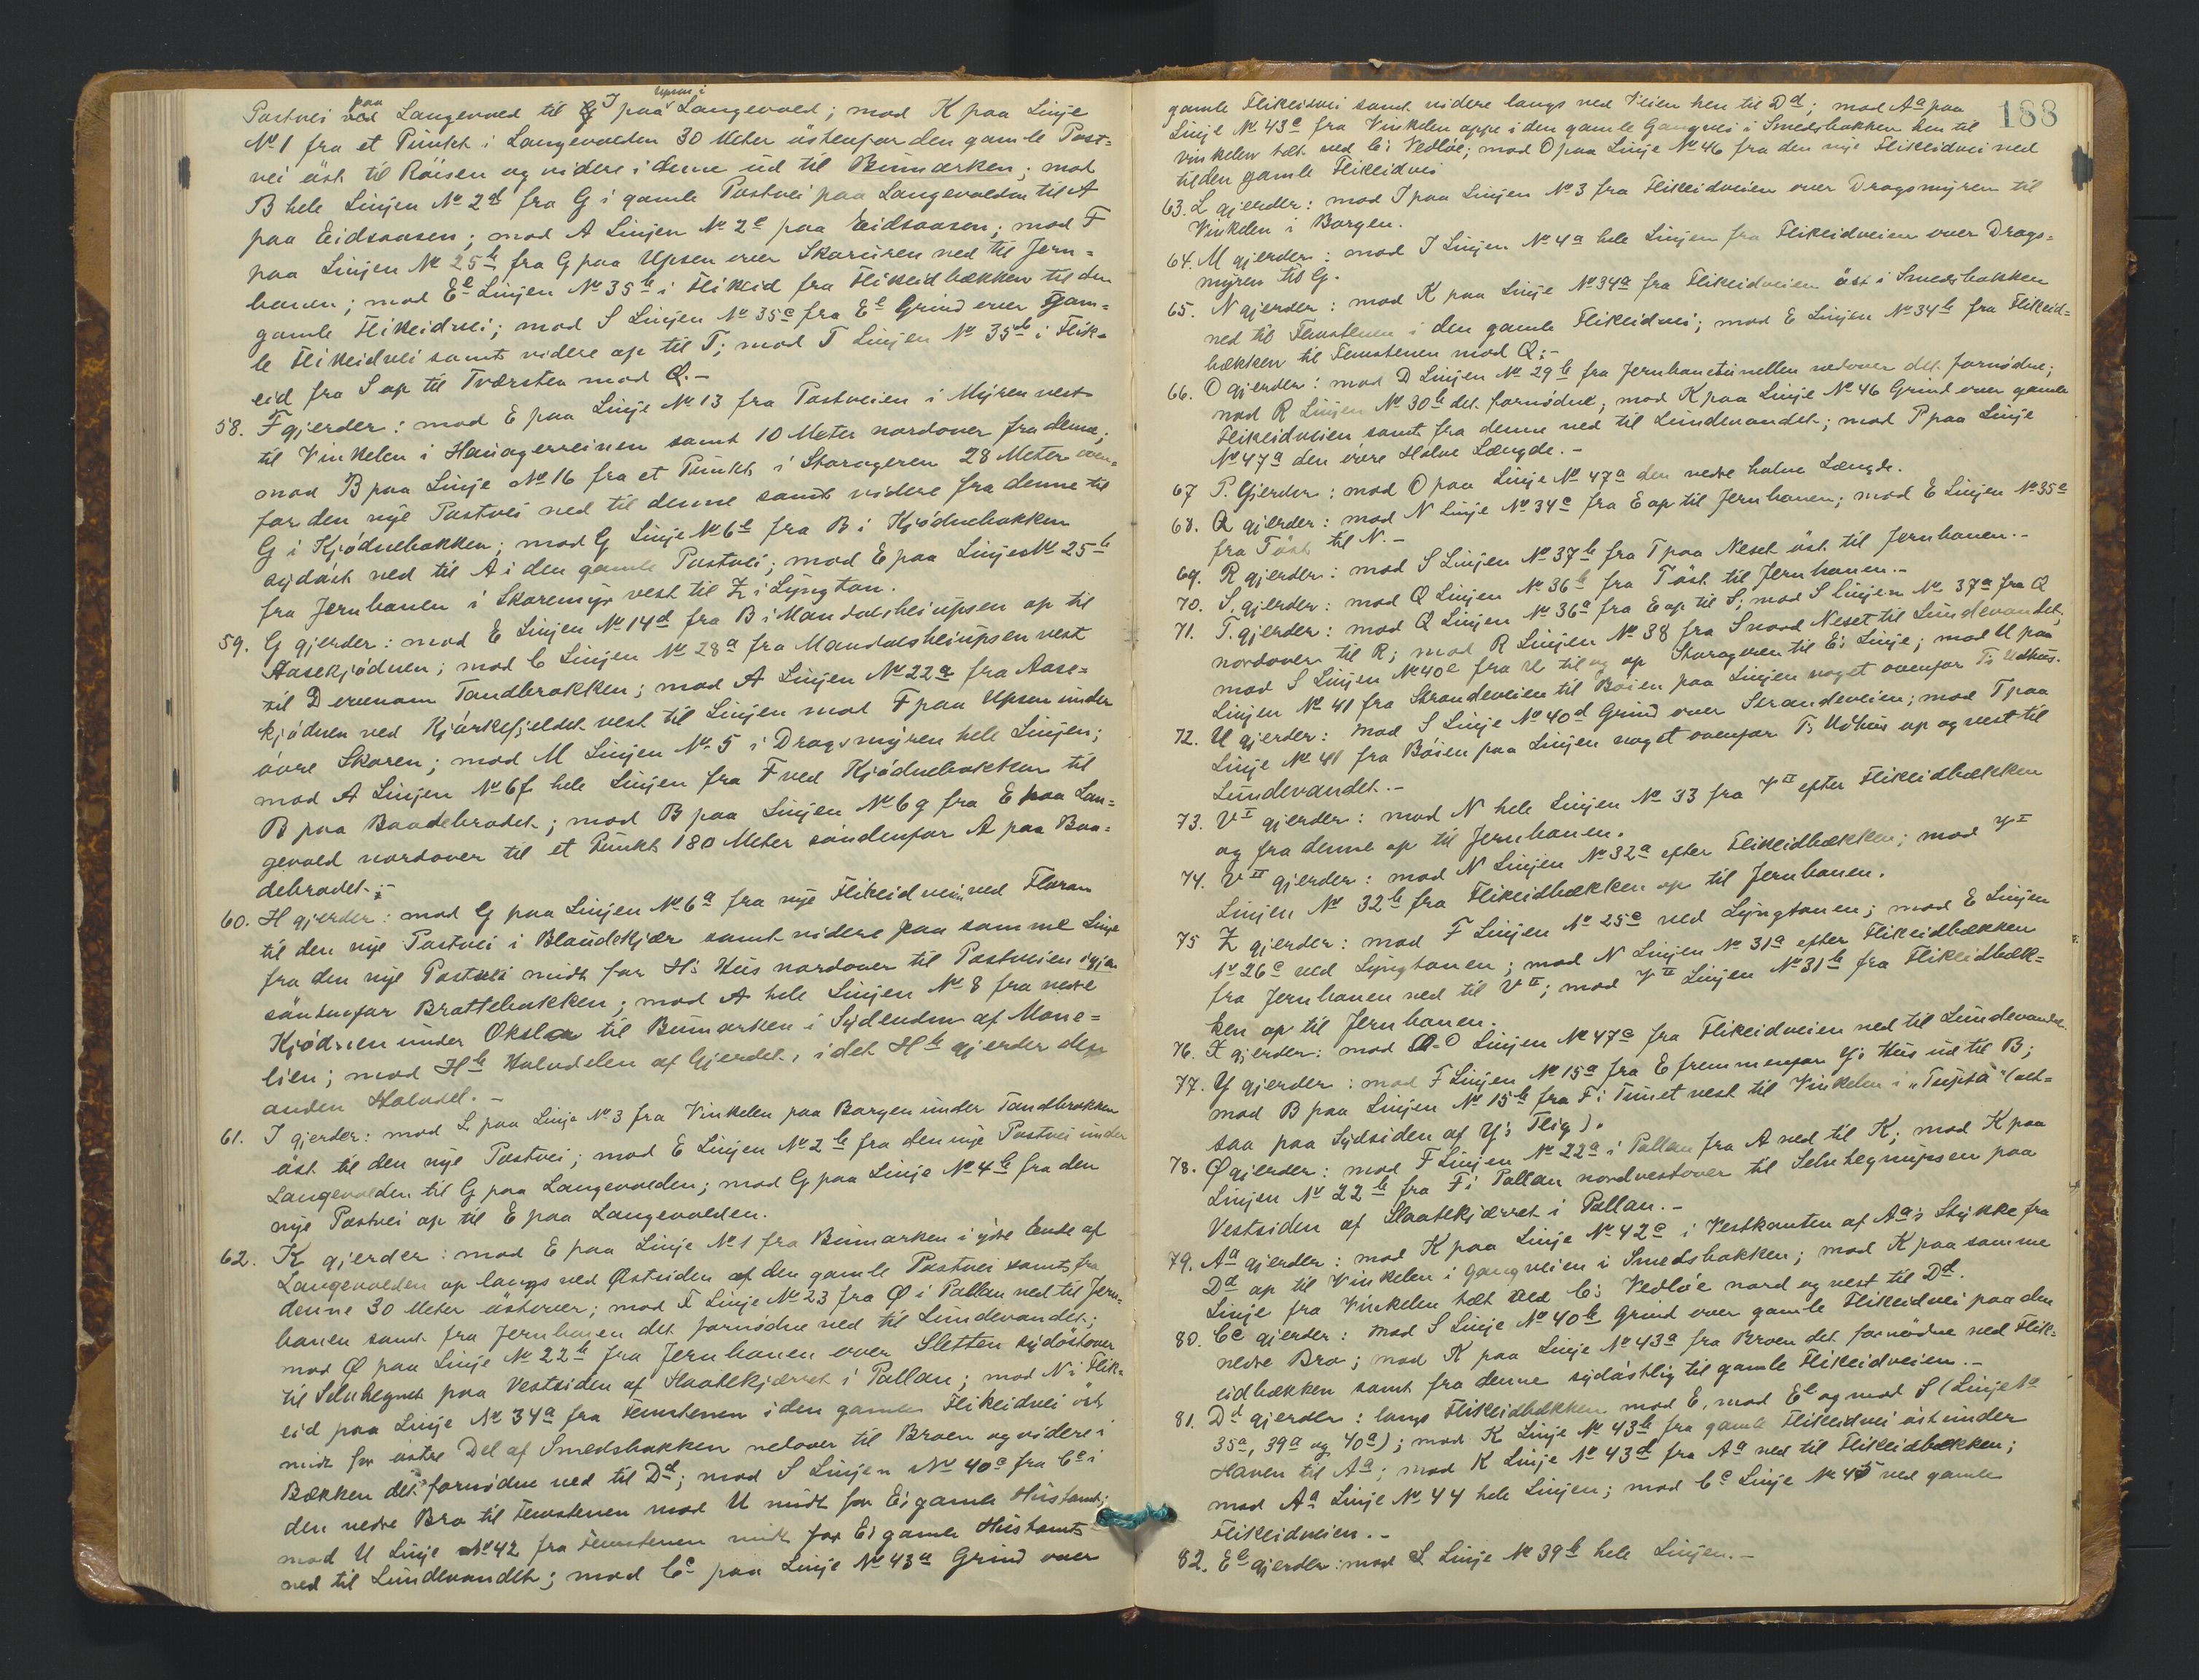 Postvei paa Langevold til I paa Upsen i Langevold; mod K paa Linje
No 1 fra et Punkt i Langevolden 30 Meter østenfor den gamle Post-
vei øst til Røisen og videre i denne ud til Bumarken; mod
B hele Linjen No 2d fra G i gamle Postvei paa Langevolden til A
paa Eidsaasen; mod A Linjen No 2e paa Eidsaasen; mod F
paa Linjen No 25b fra G paa Upsen over Skaruren ned til Jern-
banen; mod Ee Linjen No 35b i Flikeid fra Flikeidbækken til den
gamle Flikeidvei; mod S Linjen No 35c fra Ee Grind over gam-
le Flikeidvei samt videre op til T; mod T Linjen No 35d i Flik-
eid fra S op til Tværsten mod Q.-
58. F gjerder: mod E paa Linje No 13 fra Postveien i Myren vest
til Vinkelen i Hauagerreinen samt 10 Meter nordover fra denne;
mod B paa Linje No 16 fra et Punkt i Storageren 28 Meter oven-
for den nye Postvei ned til denne samt videre fra denne til
G i Kjødnebakken; mod G Linje No 6e fra B i Kjødnebakken
sydøst ned til A i den gamle Postvei; mod E paa Linjen No 25b
fra Jernbanen i Skaremyr vest til Z i Lyngton.
59. G gjerder: mod E Linjen No 14d fra B i Mandalsheiupsen op til
Aasekjødnen; mod C Linjen No 28a fra Mandalsheiupsen vest
til D ovenom Tandbrokken; mod A Linjen No 22a fra Aase-
kjødnen ved Kjørkefjeldet vest til Linjen mod F paa Upsen under
øvre Skoren; mod M Linjen No 5 i Dragsmyren hele Linjen;
mod A Linjen No 6f hele Linjen fra F ved Kjødnebakken til
B paa Baadebrodet; mod B paa Linjen No 6g fra E paa Lan-
gevold nordover til et Punkt 180 Meter søndenfor A paa Baa-
debrodet.-
60. H gjerder: mod G paa Linjen No 6a fra nye Flikeidveien ved Floran
til den nye Postvei i Blaudekjær samt videre paa samme Linje
fra den nye Postvei midt for H's Hus nordover til Postveien igjen
søndenfor Brattebakken; mod A hele Linjen No 8 fra nedre
Kjødnen under Okslæ til Bumarken i Sydenden af Mone-
lien; mod Hb Halvdelen af Gjerdet, idet Hb gjerder den
anden Halvdel.-
61. I gjerder: mod L paa Linje No 3 fra Vinkelen paa Borgen under Tandbrokken
øst til den nye Postvei; mod E Linjen No 2b fra den nye Postvei under
Langevolden til G paa Langevolden; mod G paa Linje No 4b fra den
nye Postvei op til E paa Langevolden.
62. K gjerder: mod E paa Linje No 1 fra Bumarken i ydre Ende af
Langevolden op langs ved Østsiden af den gamle Postvei samt fra
denne 30 Meter østover; mod F Linje No 23 fra Ø i Pallan ned til Jern-
banen samt fra Jernbanen det fornødne ned til Lundevandet;
mod Ø paa Linje No 22b fra Jernbanen over Sletten sydøstover
til Seluhegnet paa Vestsiden af Slaatekjærret i Pallan; mod N i Flik-
eid paa Linje No 34a fra Temstenen i den gamle Flikeidvei øst
midt for østre Del af Smedsbakken nedover til Broen og videre i
Bækken det fornødne ned til Dd; mod S Linjen No 40c fra Cc i
den nedre Bro til Temstenen mod U midt for E's gamle Hustomt;
mod U Linje No 42 fra Temstenen midt for E's gamle Hustomt
ned til Lundevandet; mod Cc paa Linje No 43a Grind over
188
gamle Flikeidvei samt videre langs ved Veien hen til Dd; mod Aa paa
Linje No 43c fra Vinkelen oppe i den gamle Gangvei i Smedsbakken hen til
vinkelen tæt ved C's Vedløe; mod O paa Linje No 46 fra den nye Flikeidvei ned
til den gamle Flikeidvei
63. L gjerder: mod I paa Linjen No 3 fra Flikeidveien over Dragsmyren til
Vinkelen i Borgen.
64. M gjerder: mod I Linjen No 4a hele Linjen fra Flikeidveien over Drags-
myren til G.
65. N gjerder: mod K paa Linje No 34a fra Flikeidveien øst i Smedsbakken
ned til Temstenen i den gamle Flikeidvei; mod E Linjen No 34b fra Flikeid-
bækken til Temstenen mod Q;-
66. O gjerder: mod D Linjen No 29b fra Jernbanetunellen nedover det fornødne;
mod R Linjen No 30b det fornødne; mod K paa Linje No 46 Grind over gamle
Flikeidveien samt fra denne ned til Lundevandet; mod P paa Linje
No 47a den øvre Halve Længde.-
67 P. Gjerder: mod O paa Linje No 47a den nedre halve Længde.
68. Q gjerder: mod N Linje No 34c fra E op til Jernbanen; mod E Linjen No 35e
fra T øst til N.-
69. R gjerder: mod S Linjen No 37b fra T paa Neset øst til Jernbanen.-
70. S. gjerder: mod Q Linjen No 36b fra T øst til Jernbanen.-
71. T. gjerder: mod Q Linjen No 36a fra E op til S; mod S Linjen No 37a fra Q
nordover til R; mod R Linjen No 38 fra S nord Neset til Lundevandet;
mod S Linjen No 40e fra U til og op Storageren til E's Linje; mod U paa
Linjen No 41 fra Strandeveien til Bøien paa Linjen noget ovenfor T's Udhus.
72. U gjerder: mod S Linje No 40d Grind over Strandeveien; mod T paa
Linje No 41 fra Bøien paa Linjen noget ovenfor T's Udhus op og vest til
Lundevandet.-
73. VI gjerder: mod N hele Linjen No 33 fra VII efter Flikeidbækken
og fra denne op til Jernbanen.
74. VII gjerder: mod N Linjen No 32a efter Flikeidbækken; mod VI
Linjen No 32b fra Flikeidbækken op til Jernbanen.
75 Z gjerder: mod F Linjen No 25c ved Lyngtonen; mod E Linjen
No 26c ved Lyngtonen; mod N Linjen No 31a efter Flikeidbækken
fra Jernbanen ned til VII; mod VII Linjen No 31b fra Flikeidbæk-
ken op til Jernbanen.
76. X gjerder: mod O Linjen No 47c fra Flikeidveien ned til Lundevandet.
77. Y gjerder: mod F Linjen No 15a fra E fremmenfor Y's Hus ud til B;
mod B paa Linjen No 15b fra F i Tunet vest til Vinkelen i "Tufta" (alt-
saa paa Sydsiden af Y's Teig).
78. Ø gjerder: mod F Linjen No 22a i Pallan fra A ned til K; mod K paa
Linjen No 22b fra F i Pallan nordvestover til Seluhegnupsen paa
Vestsiden af Slaatekjærret i Pallan.-
79. Aa gjerder: mod K paa Linje No 42c i Vestkanten af Aa's Stykke fra
Dd op til Vinkelen i gangveien i Smedsbakken; mod K paa samme
Linje fra Vinkelen tæt ved C's Vedløe nord og vest til Dd.
80. Cc gjerder: mod S Linje No 40b Grind over gamle Flikeidvei paa den
nedre Bro; mod K paa Linje No 43a fra Broen det fornødne ned Flik-
eidbækken samt fra denne sydøstlig til gamle Flikeidveien.-
81. Dd gjerder: langs Flikeidbækken mod E, mod Ee og mod S (Linje No
35a, 39a og 40a); mod K Linje No 43b fra gamle Flikeidvei øst under
Haven til Aa; mod K Linje No 43d fra Aa ned til Flikeidbækken;
mod Aa Linje No 44 hele Linjen; mod Cc Linje No 45 ved gamle
Flikeidveien.-
82. Ee gjerder: mod S Linje No 39b hele Linjen.-